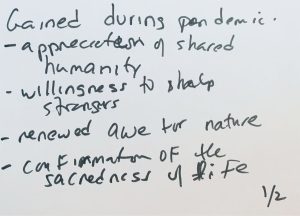 Gained during pandemic.
- appreciation of shared
humanity
- willingness to help
strangers
- renewed awe for nature
- confirmation OF the
sacredness of liFe
1/2